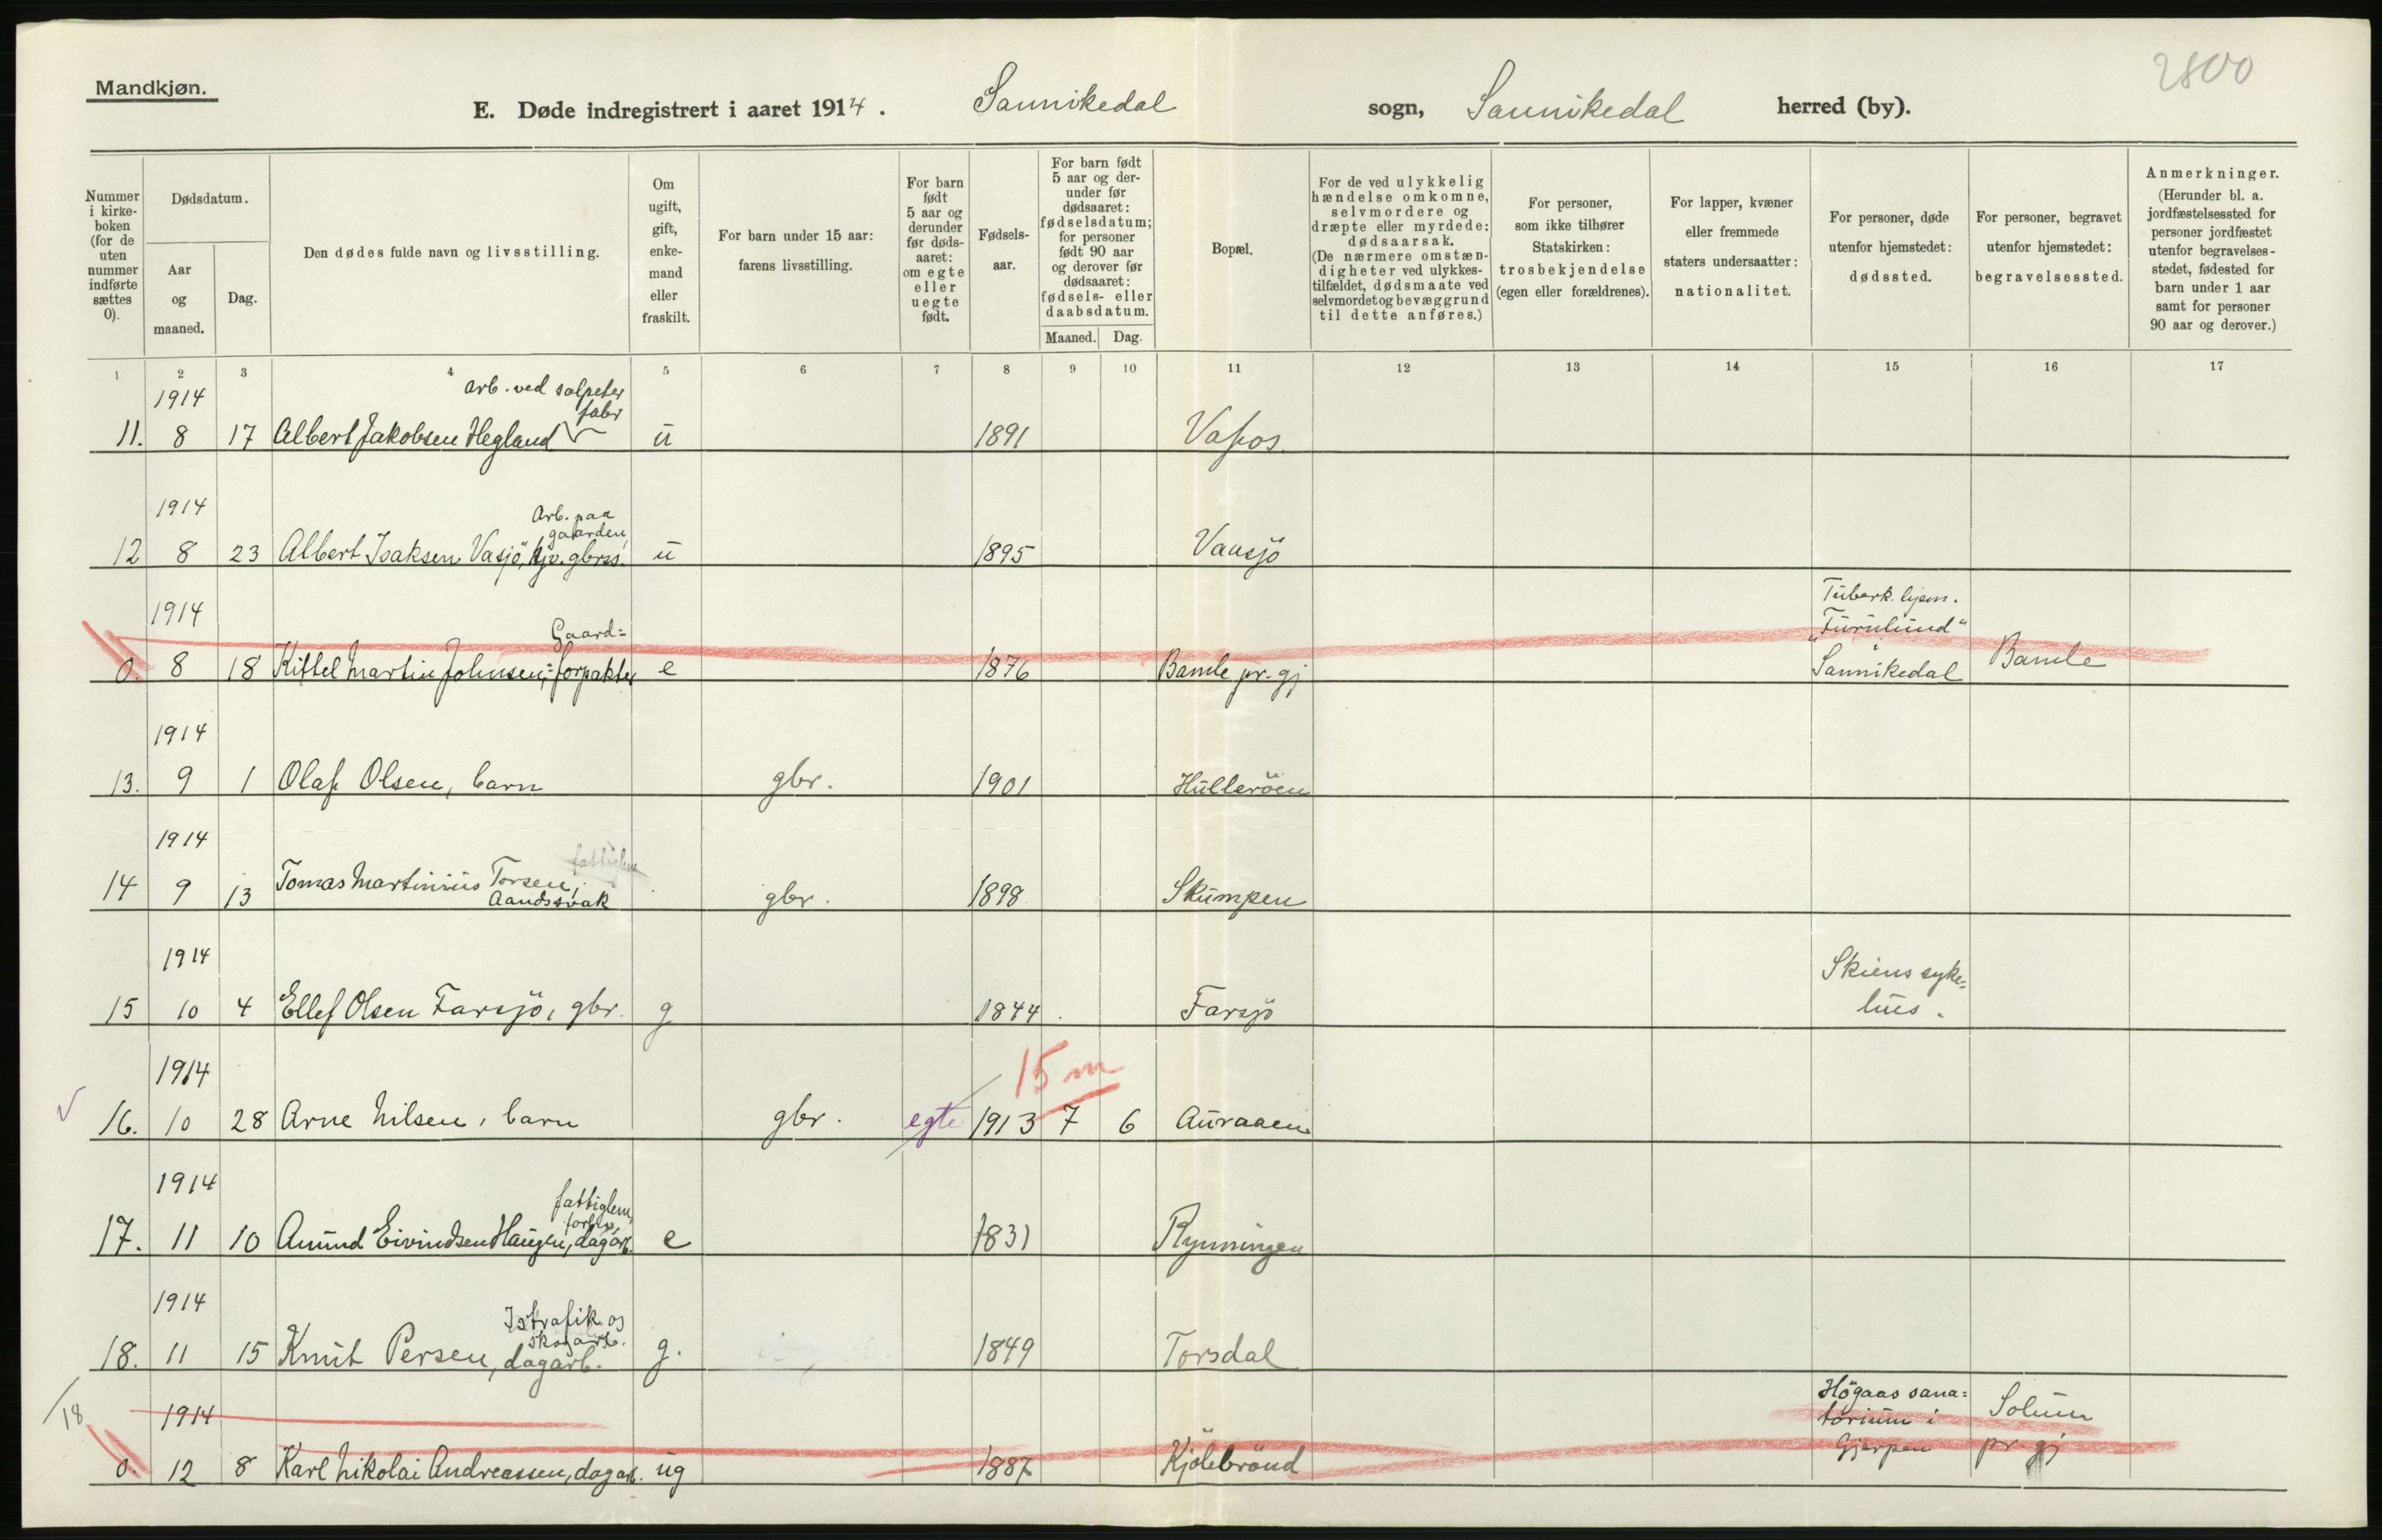 2800
Mandkjøn.
E. Døde indregistrert i aaret 1914. Sannikedal sogn, Sannikedal herred (by).
Nummer i kirke-boken (for de uten nummer indførte sættes 0).
Dødsdatum.
Aar og maaned.
Dag.
Den dødes fulde navn og livsstilling.
Om ugift, gift, enke-mand eller fraskilt.
For barn under 15 aar: farens livsstilling.
For barn født 5 aar og derunder før døds-aaret: om egte eller uegte født.
Fødsels-aar.
For barn født 5 aar og der-under før dødsaaret: fødselsdatum; for personer født 90 aar og derover før dødsaaret: fødsels- eller daabsdatum.
Maaned. Dag.
Bopæl.
For de ved ulykkelig hændelse omkomne, selvmordere og dræpte eller myrdede: dødsaarsak. (De nærmere omstæn-digheter ved ulykkes-tilfældet, dødsmaate ved selvmordet og bevæggrund til dette anføres.)
For personer, som ikke tilhører Statskirken: trosbekjendelse (egen eller forældrenes).
For lapper, kvæner eller fremmede staters undersaatter: nationalitet.
For personer, døde utenfor hjemstedet: dødssted.
For personer, begravet utenfor hjemstedet: begravelsessted.
Anmerkninger. (Herunder bl. a. jordfæstelsessted for personer jordfæstet utenfor begravelses-stedet, fødested for barn under 1 aar samt for personer 90 aar og derover.)
1 2 3 4 5 6 7 8 9 10 11 12 13 14 15 16 17
1914 arb. ved salpeter
fabr
11. 8 17 Albert Jakobsen Hegland ū 1891 Vafos.
1914 Arb. paa
gaarden,
12 8 23 Albert Isaksen Vasjö, kjv. gbrss. ū 1895 Vaasjö
1914 Gaard= Tuberk. hjem.
"Furulund"
i
0. 8 18 Kittel Martin Johnsen,=forpakter e 1876 Bamle pr. gj Sannikedal Bamle
1914
13. 9 1 Olaf Olsen, barn gbr. 1901 Hulleröen
1914 fattiglem
14 9 13 Tomas Martinius Torsen,
Aandssvak gbr. 1898 Skumpen
1914 Skiens syke=
15 10 4 Ellef Olsen Farsjö, gbr. g 1844 Farsjö hus.
1914 15 m
16. 10 28 Arne Nilsen, barn gbr. egte 1913 7 6 Auraaen
1914 fattiglem,
forhv.
17. 11 10 Amund Eivindsen Haugen, dagarb. e 1831 Rynningen
1914 Istrafik og
skogarb.
18. 11 15 Knut Persen, dagarb. g. 1849 Torsdal
/18 1914 Högaas sana=
torium i Solum
0. 12 8 Karl Nikolai Andreassen, dagarb. ug 1887 Kjölebrönd Gjerpen pr gj